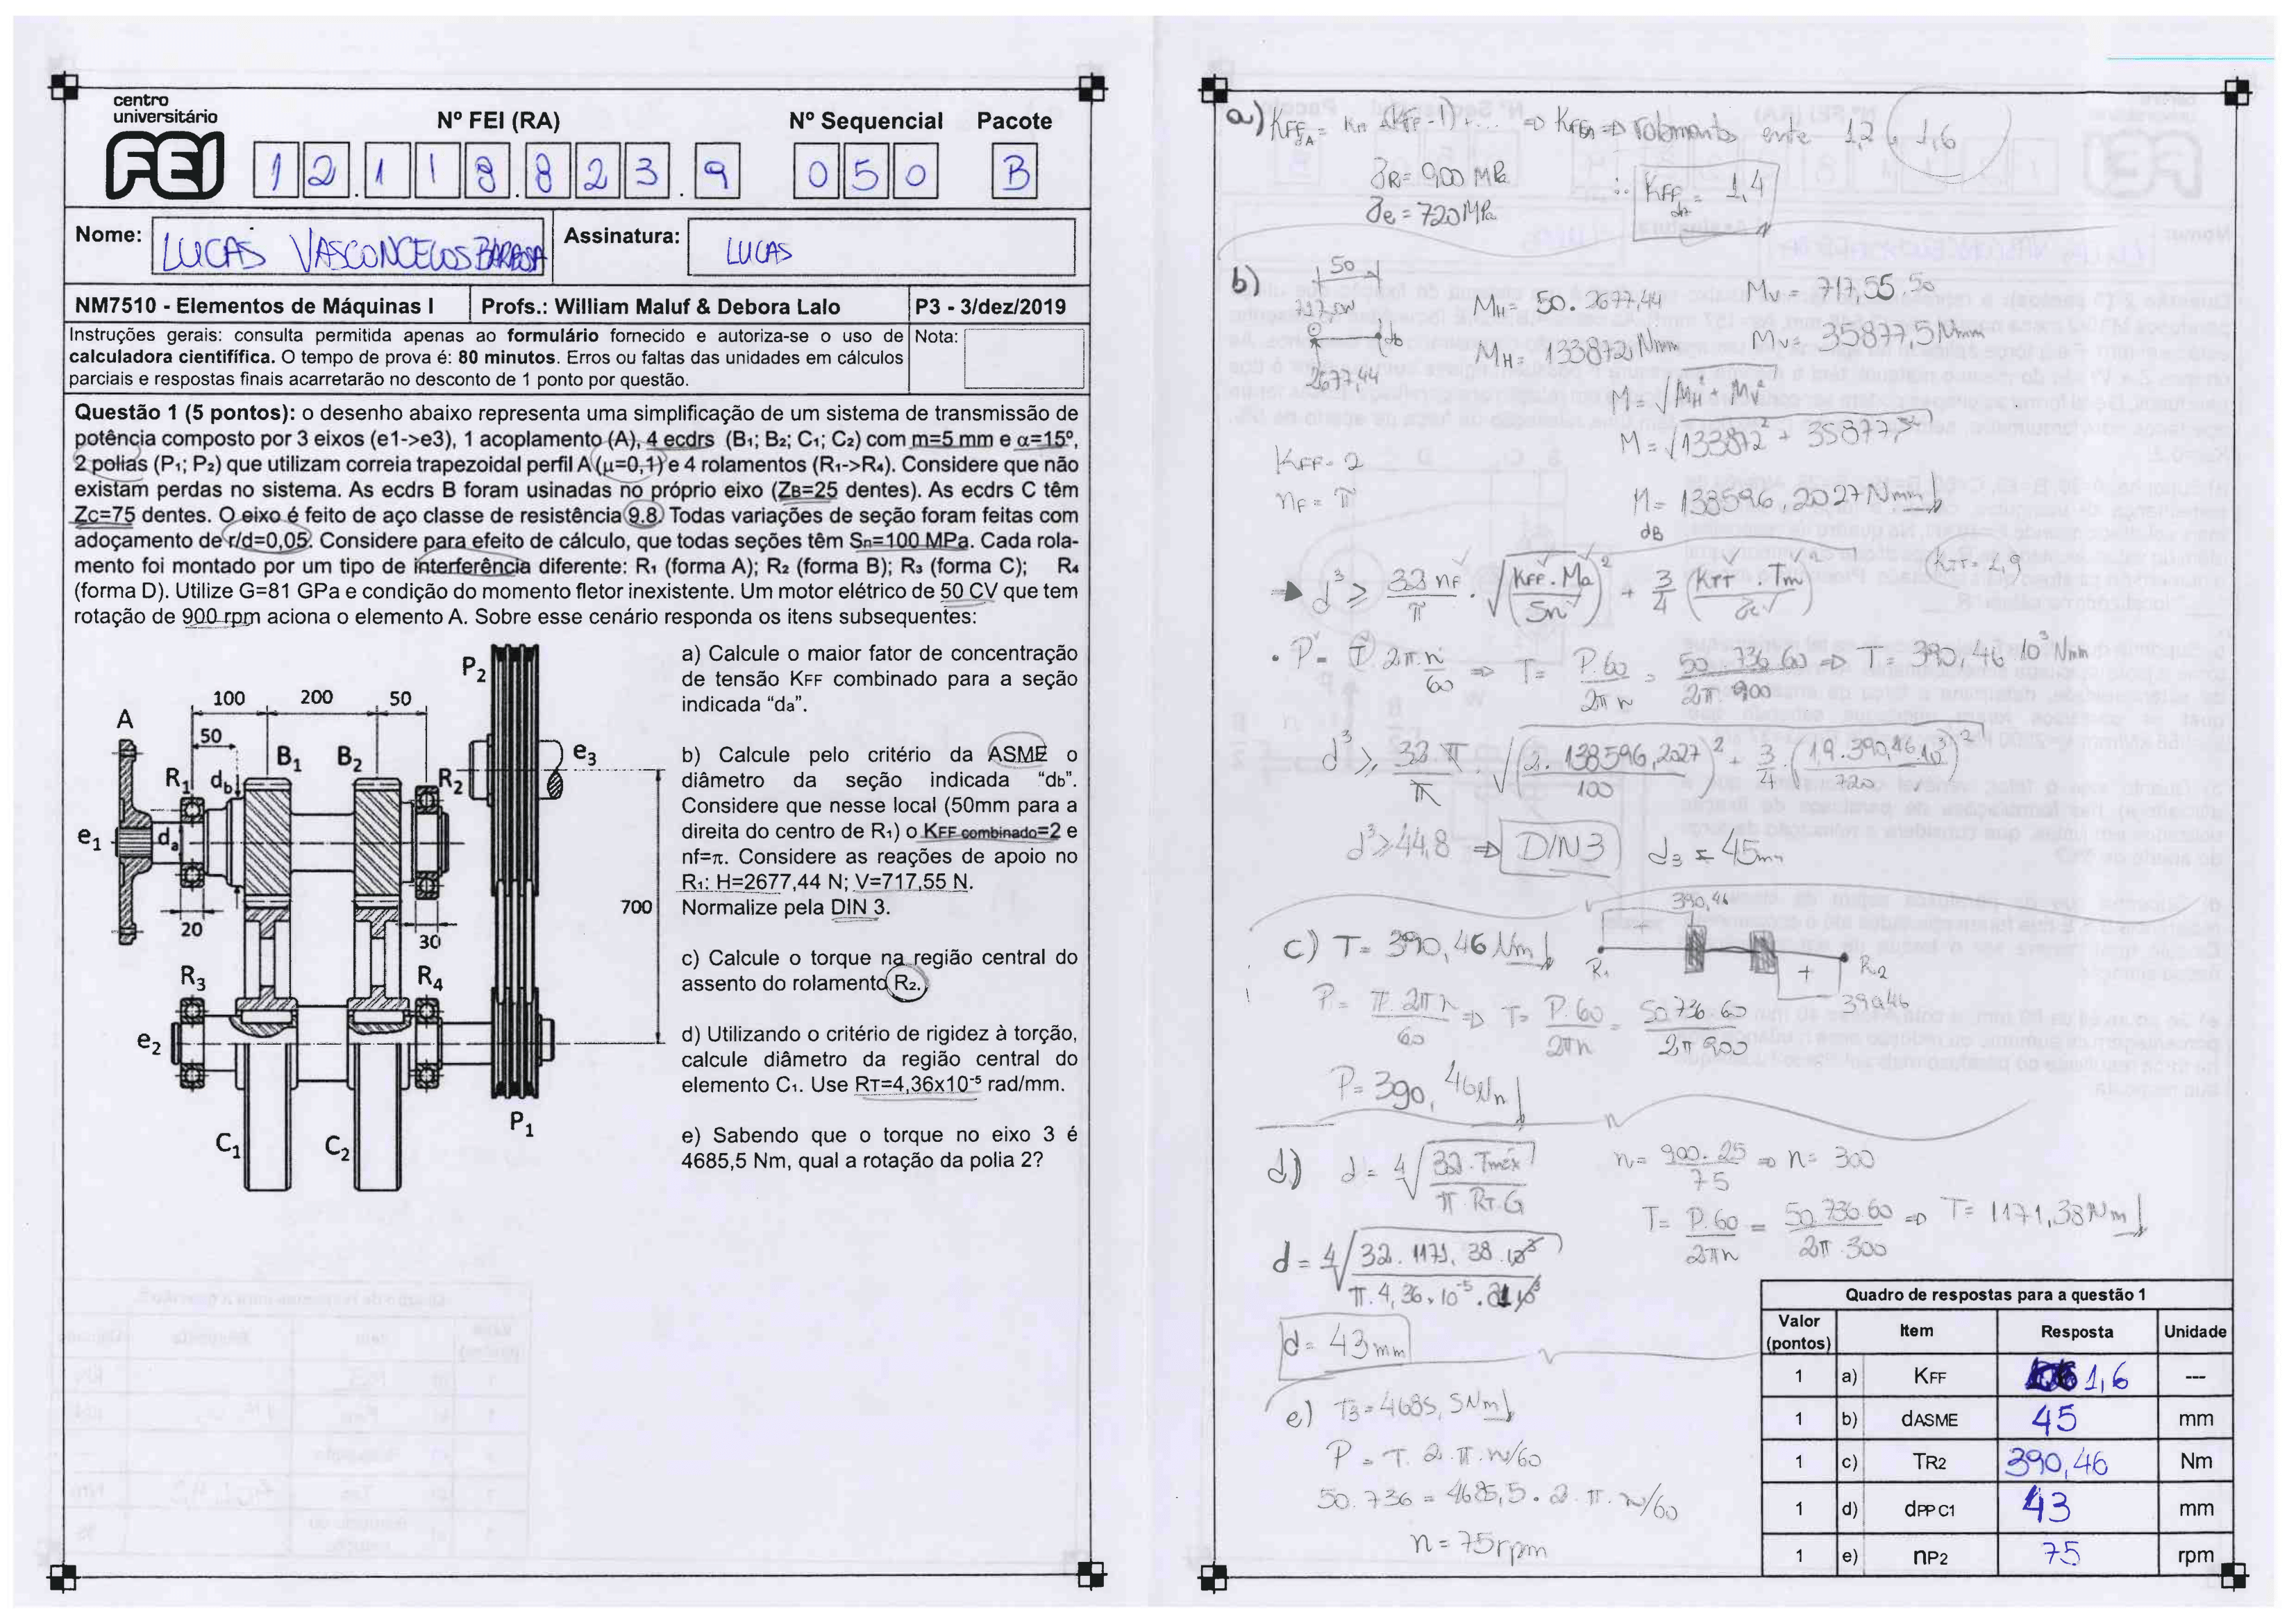 centro
universitário
FEI
Nº FEI (RA)
Nº Sequencial
Pacote
12.118.823.9
050
B
Nome:
LUCAS VASCONCELOS BARBOSA
Assinatura:
LUCAS
NM7510 - Elementos de Máquinas I
Profs.: William Maluf & Debora Lalo
P3 - 3/dez/2019
Instruções gerais: consulta permitida apenas ao formulário fornecido e autoriza-se o uso de
calculadora cientifífica. O tempo de prova é: 80 minutos. Erros ou faltas das unidades em cálculos
parciais e respostas finais acarretarão no desconto de 1 ponto por questão.
Nota:
Questão 1 (5 pontos): o desenho abaixo representa uma simplificação de um sistema de transmissão de
potência composto por 3 eixos (e1->e3), 1 acoplamento (A), 4 ecdrs (B1; B2; C1; C2) com m=5 mm e α=15º,
2 polias (P1; P2) que utilizam correia trapezoidal perfil A (μ=0,1) e 4 rolamentos (R1->R4). Considere que não
existam perdas no sistema. As ecdrs B foram usinadas no próprio eixo (ZB=25 dentes). As ecdrs C têm
Zc=75 dentes. O eixo é feito de aço classe de resistência 9.8. Todas variações de seção foram feitas com
adoçamento de r/d=0,05. Considere para efeito de cálculo, que todas seções têm Sn=100 MPa. Cada rola-
mento foi montado por um tipo de interferência diferente: R1 (forma A); R2 (forma B); R3 (forma C); R4
(forma D). Utilize G=81 GPa e condição do momento fletor inexistente. Um motor elétrico de 50 CV que tem
rotação de 900 rpm aciona o elemento A. Sobre esse cenário responda os itens subsequentes:
P2
100 200 50
A
50
B1 B2
R1 db
R2
e3
e1
da
20
30
700
R3
R4
e2
C1
C2
P1
a) Calcule o maior fator de concentração
de tensão KFF combinado para a seção
indicada “da”.
b) Calcule pelo critério da ASME o
diâmetro da seção indicada “db”.
Considere que nesse local (50mm para a
direita do centro de R1) o KFF combinado=2 e
nf=π. Considere as reações de apoio no
R1: H=2677,44 N; V=717,55 N.
Normalize pela DIN 3.
c) Calcule o torque na região central do
assento do rolamento R2.
d) Utilizando o critério de rigidez à torção,
calcule diâmetro da região central do
elemento C1. Use RT=4,36x10-5 rad/mm.
e) Sabendo que o torque no eixo 3 é
4685,5 Nm, qual a rotação da polia 2?
a) KFFdA = ... => rolamento ente 1,2 e 1,6
σR = 900 MPa
σe = 720 MPa
∴ KFF = 1,4
b)
50
db
2677,44
MH = 50. 2677,44
MH = 133872 Nmm
MV = 717,55. 50
MV = 35877,5 Nmm
M = √MH² + MV²
M = √133872² + 35877,5²
M = 138596,2027 Nmm
dB
KFF = 2
nF = π
d³ ≥ 32 nF/π . √(KFF . Ma/Sn)² + 3/4 (KTT . Tm/σe)²
KTT = 1,9
P = T. 2π. n/60 => T = P. 60/2π n = 50. 736. 60/2π. 900 => T = 390,46 10³ Nmm
d³ ≥ 32. π/π . √(2. 138596,2027/100)² + 3/4 . (1,9. 390,46. 10³/720)²
d³ ≥ 44,8 => DIN 3 d3 = 45mm
c) T = 390,46 Nm
390,46
R1
+
R2
390,46
P = T. 2π n/60 => T = P. 60/2πn = 50.736.60/2π 900
P = 390,46 Nm
d) d = ⁴√32. Tmáx/π. RT. G
n = 900. 25/75 => n = 300
T = P. 60/2πn = 50.736.60/2π. 300 => T = 1171,38 Nm
d = ⁴√32. 1171,38. 10³/π. 4,36 x 10-5. 81 10³
d = 43 mm
e) T3 = 4685,5 Nm
P = T. 2. π. n/60
50. 736 = 4685,5. 2. π. n/60
n = 75 rpm
Quadro de respostas para a questão 1
Valor (pontos) Item Resposta Unidade
1 a) KFF 1,6 ---
1 b) dASME 45 mm
1 c) TR2 390,46 Nm
1 d) dPP C1 43 mm
1 e) nP2 75 rpm